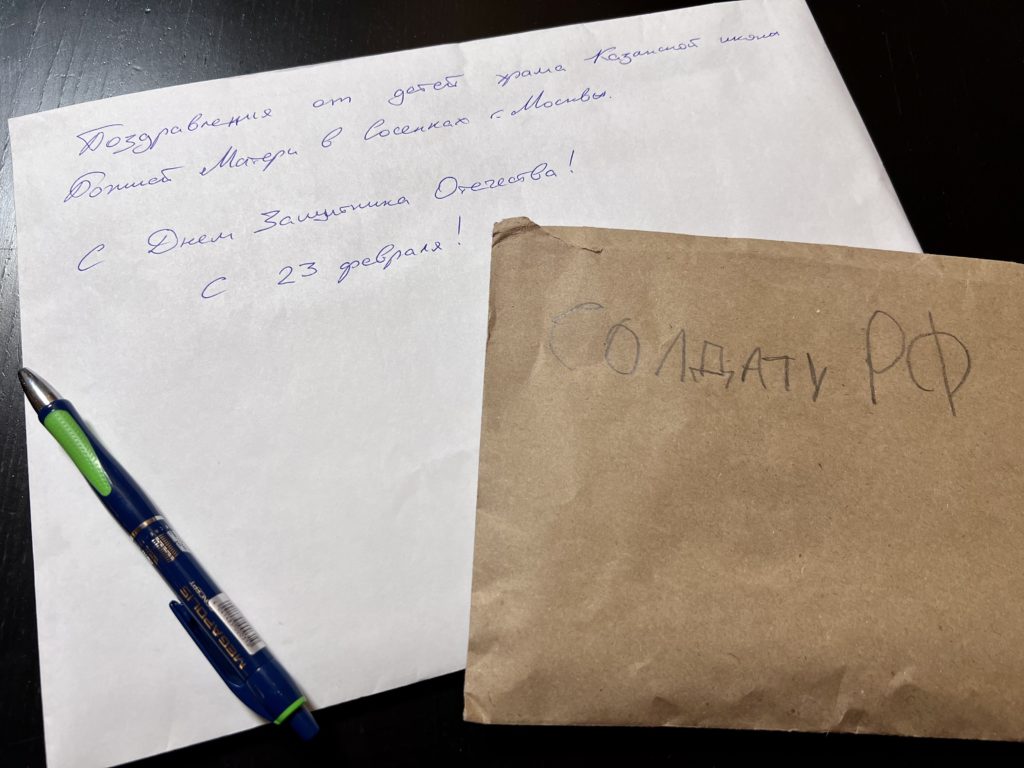 Поздравления от детей храма Казанской иконы
Божией Матери в Сосенках г. Москвы.
С Днем Защитника Отечества!
С 23 февраля!
СОЛДАТУ РФ
MEGAPOLIS